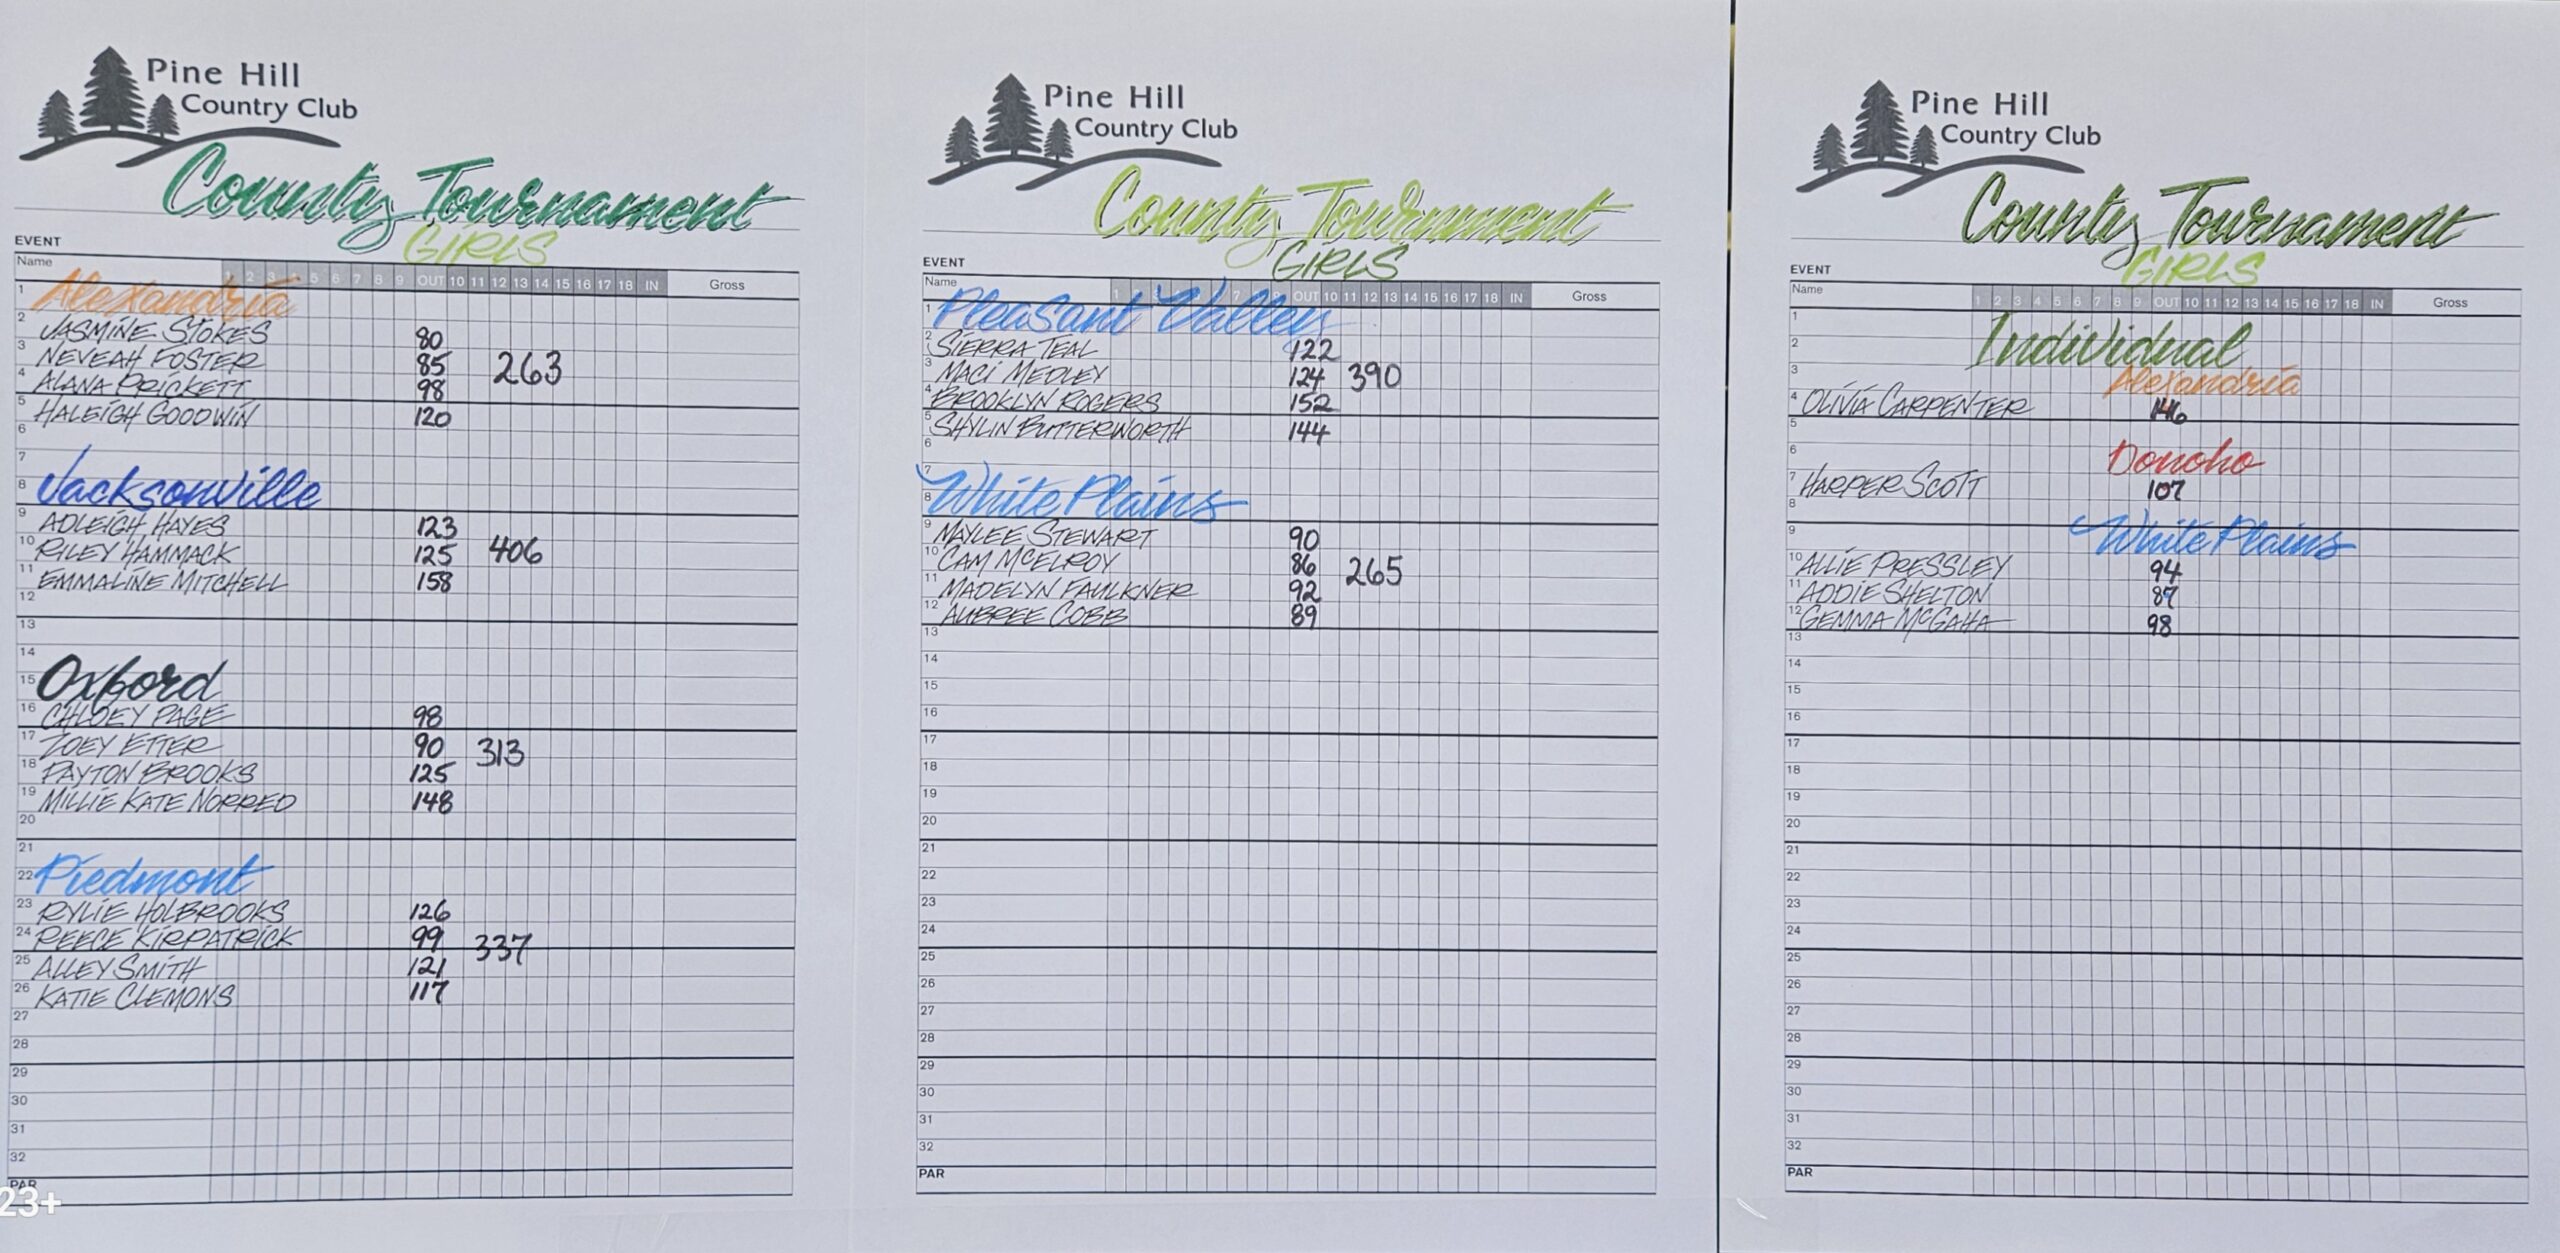 Pine Hill
Country Club
County Tournament
GIRLS
EVENT
Name 1 2 3 4 5 6 7 8 9 OUT 10 11 12 13 14 15 16 17 18 IN Gross
1 Alexandria
2 JASMINE STOKES 80
3 NEVEAH FOSTER 85 263
4 ALANA PRICKETT 98
5 HALEIGH GOODWIN 120
6
7
8 Jacksonville
9 ADLEIGH HAYES 123
10 RILEY HAMMACK 125 406
11 EMMALINE MITCHELL 158
12
13
14
15 Oxford
16 CHLOEY PAGE 98
17 ZOEY ETTER 90 313
18 PAYTON BROOKS 125
19 MILLIE KATE NORRED 148
20
21
22 Piedmont
23 RYLIE HOLBROOKS 126
24 REECE KIRPATRICK 99 337
25 ALLEY SMITH 121
26 KATIE CLEMONS 117
27
28
29
30
31
32
PAR
23+
Pine Hill
Country Club
County Tournment
GIRLS
EVENT
Name 7 OUT 10 11 12 13 14 15 16 17 18 IN Gross
1 Pleasant Valley
2 SIERRA TEAL 122
3 MACI MEDLEY 124 390
4 BROOKLYN ROGERS 152
5 SHYLIN BUTTERWORTH 144
6
7
8 White Plains
9 MAYLEE STEWART 90
10 CAM MCELROY 86 265
11 MADELYN FAULKNER 92
12 AUBREE COBB 89
13
14
15
16
17
18
19
20
21
22
23
24
25
26
27
28
29
30
31
32
PAR
Pine Hill
Country Club
County Tournament
GIRLS
EVENT
Name 1 2 3 4 5 6 7 8 9 OUT 10 11 12 13 14 15 16 17 18 IN Gross
1
2 Individual
3 Alexandria
4 OLIVIA CARPENTER 146
5
6 Donoho
7 HARPER SCOTT 107
8
9 White Plains
10 ALLIE PRESSLEY 94
11 ADDIE SHELTON 87
12 GEMMA MCGAHA 98
13
14
15
16
17
18
19
20
21
22
23
24
25
26
27
28
29
30
31
32
PAR